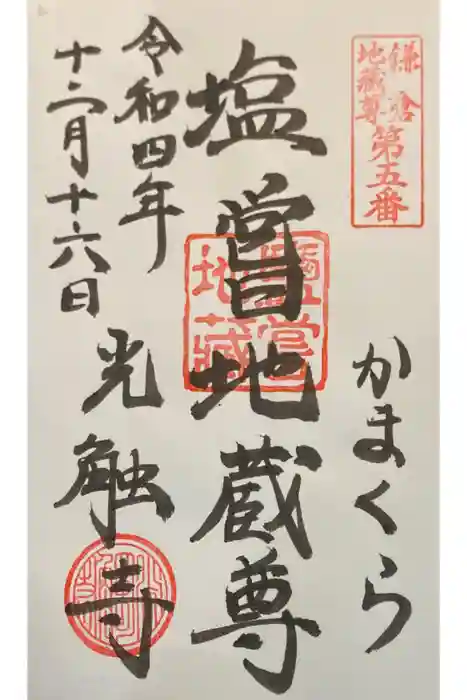 鎌倉
地蔵尊
第五番
かまくら
塩嘗地蔵尊
鹽嘗
地蔵
令和四年
十二月十六日
光触寺